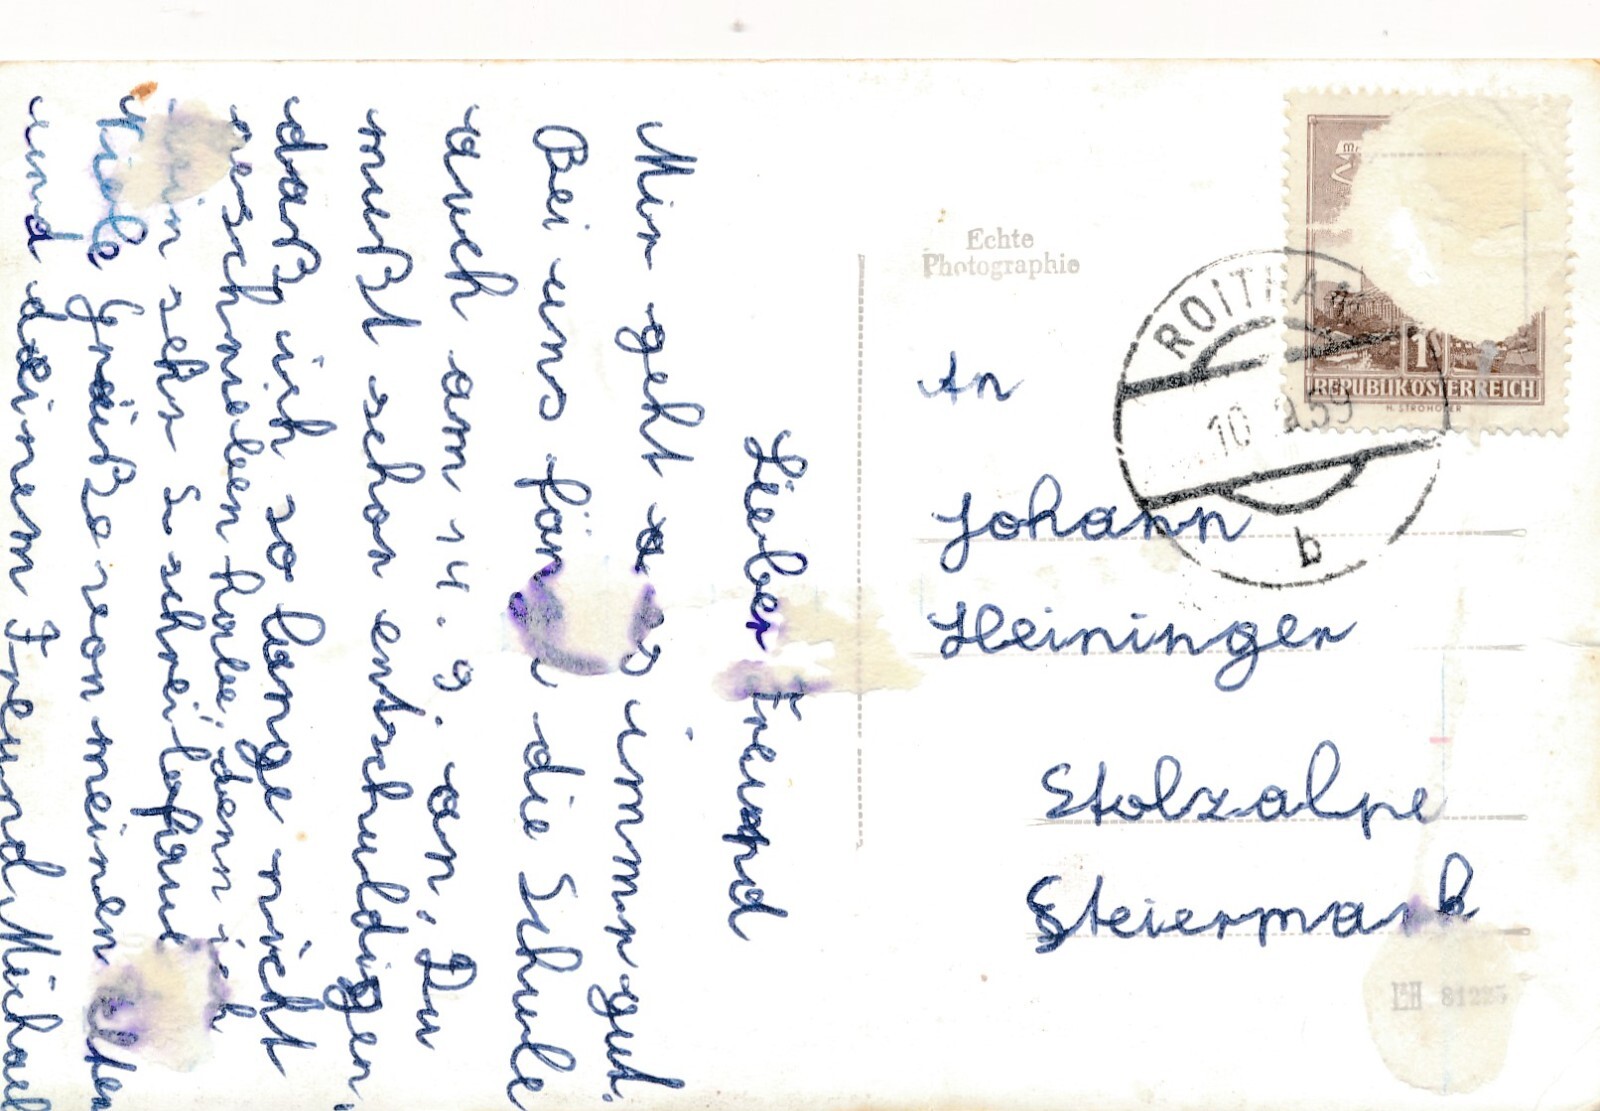 Lieber Freund
Mir geht es immer gut.
Bei uns fängt die Schule
auch am 14. 9. an, Du
mußt schon entschuldigen,
daß ich so lange nicht
geschrieben habe, denn ich
bin sehr s. schreibfaul
Viele Grüße von meinen Eltern
und deinem Freund Michael
Echte
Photographie
An
Johann
Heininger
Stolzalpe
Steiermark
ROITHAM
10. 59
b
1S
REPUBLIK ÖSTERREICH
H. STROHOFER
81225